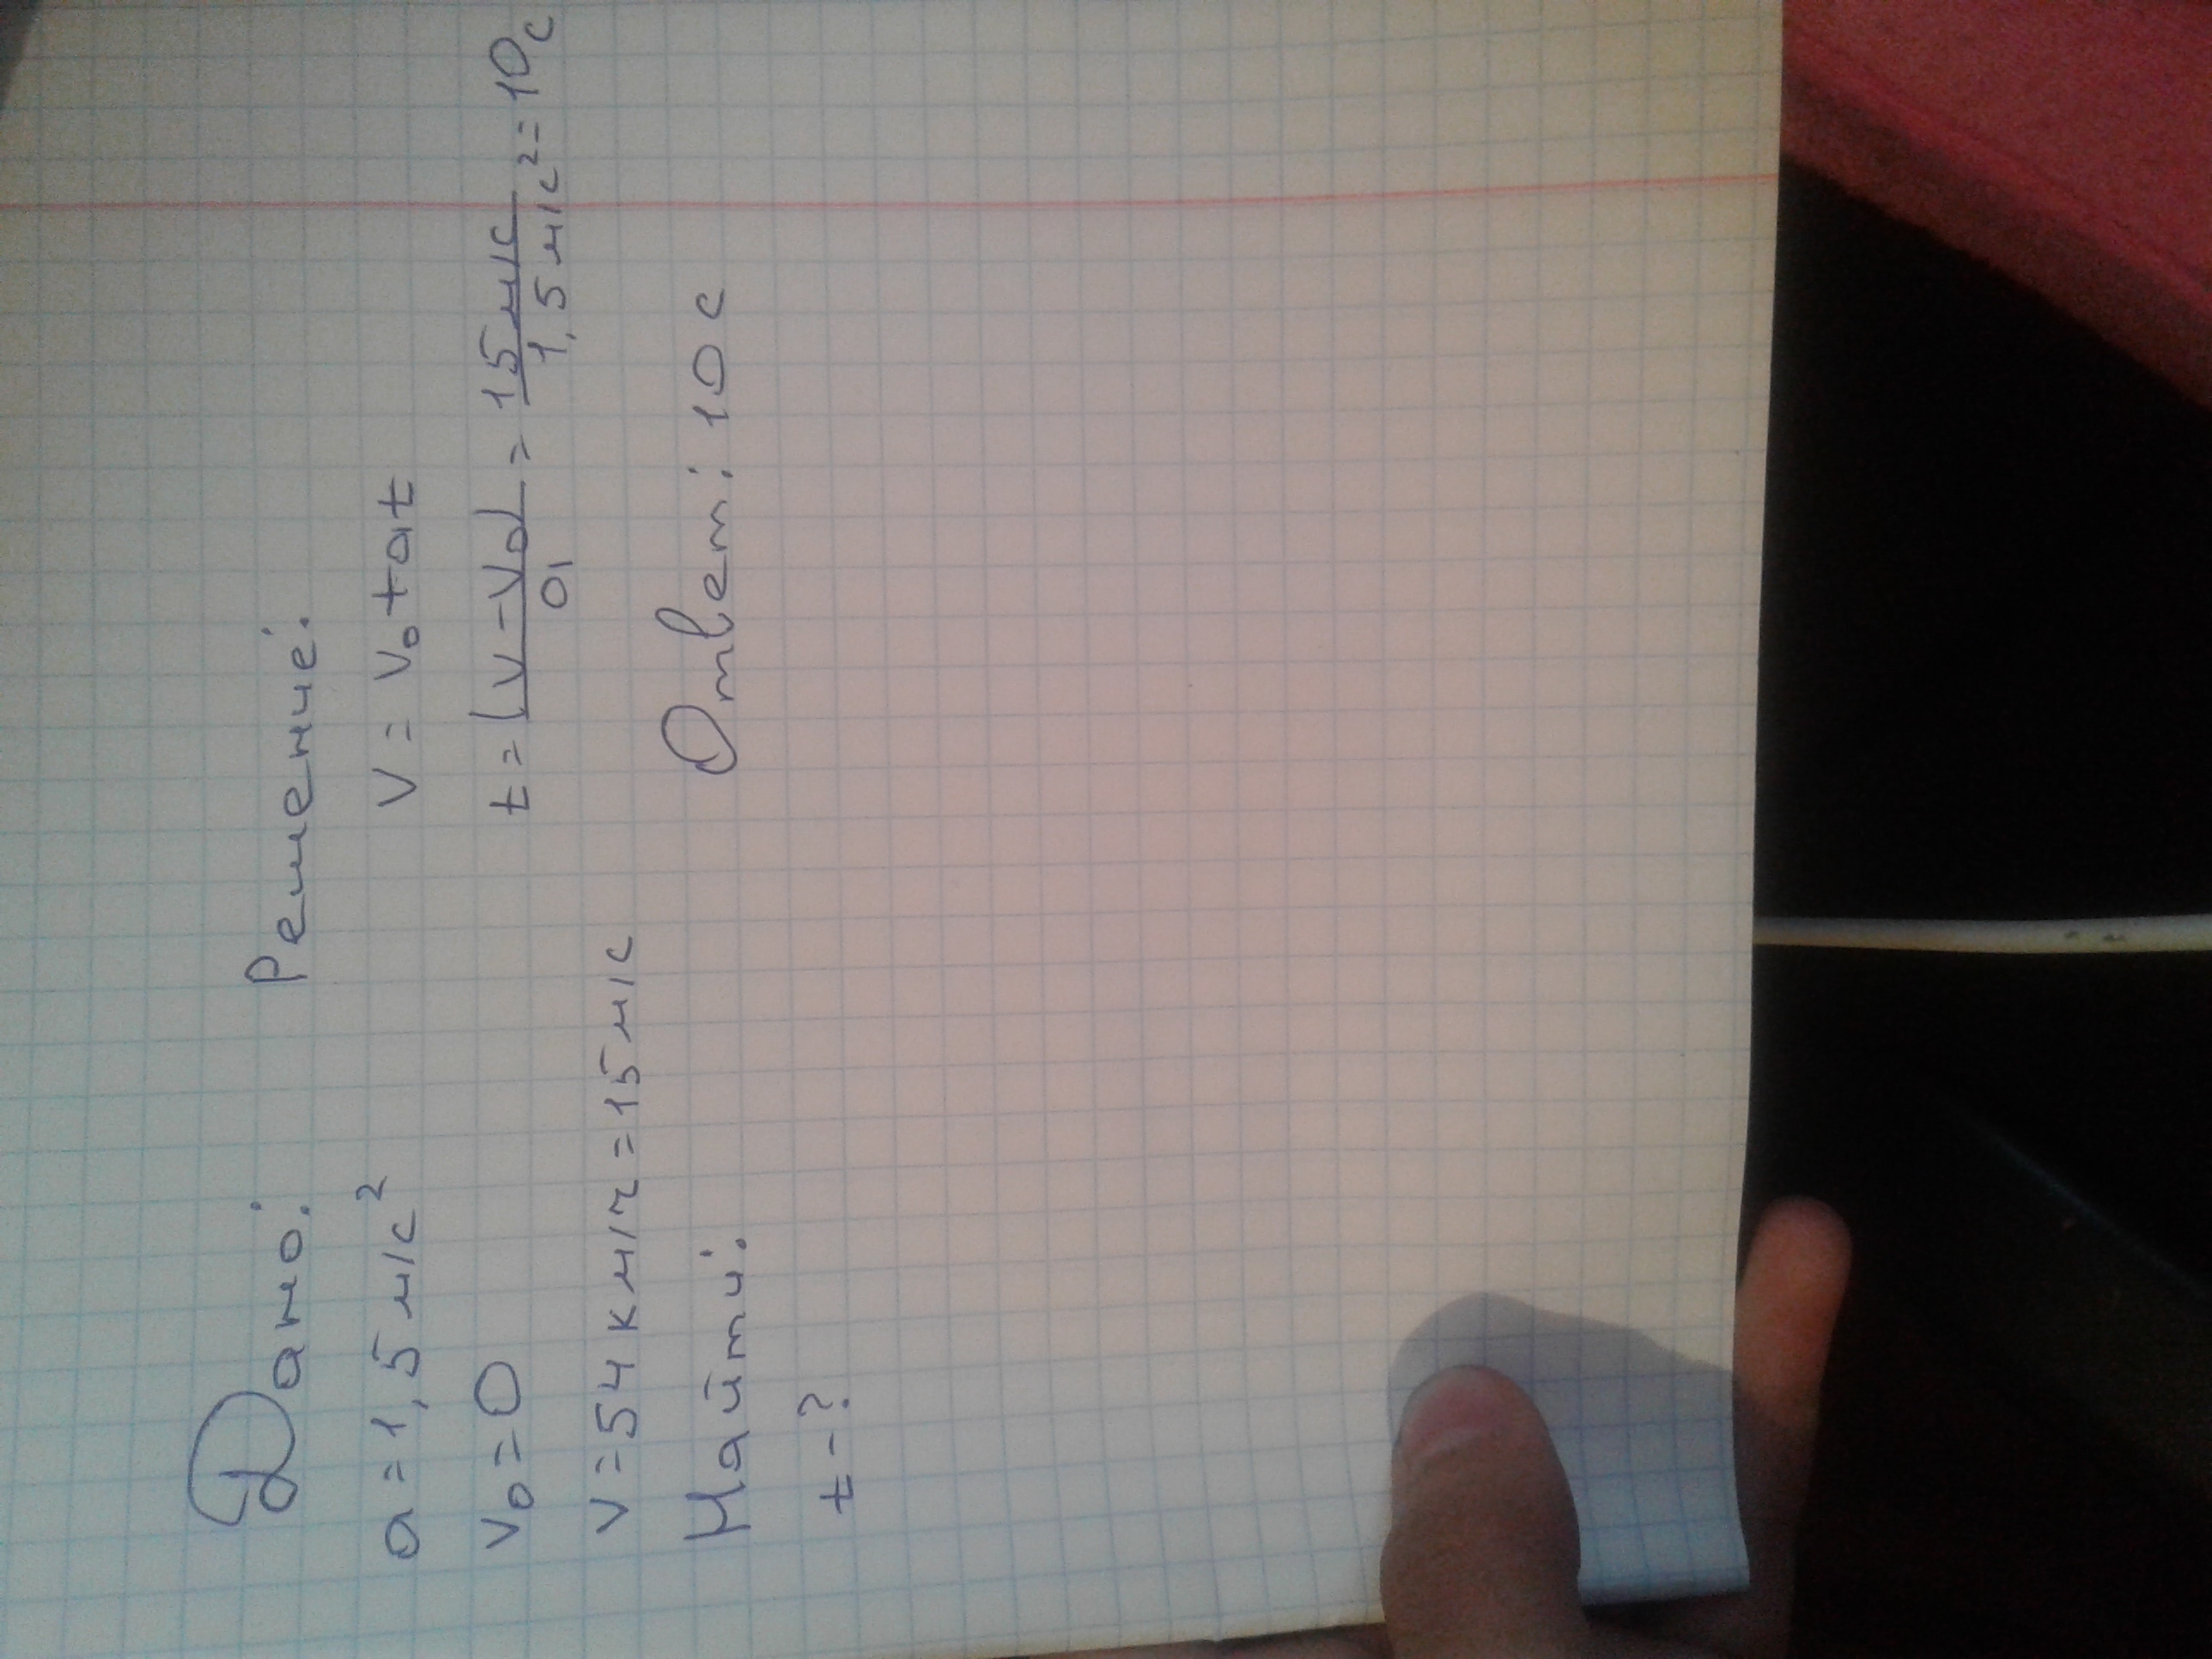 Дано:
a = 1,5 м/с²
V₀ = 0
V = 54 км/ч = 15 м/с
Найти:
t - ?
Решение:
V = V₀ + at
t = (V - V₀)/a = 15 м/с / 1,5 м/с² = 10 с
Ответ: 10 с